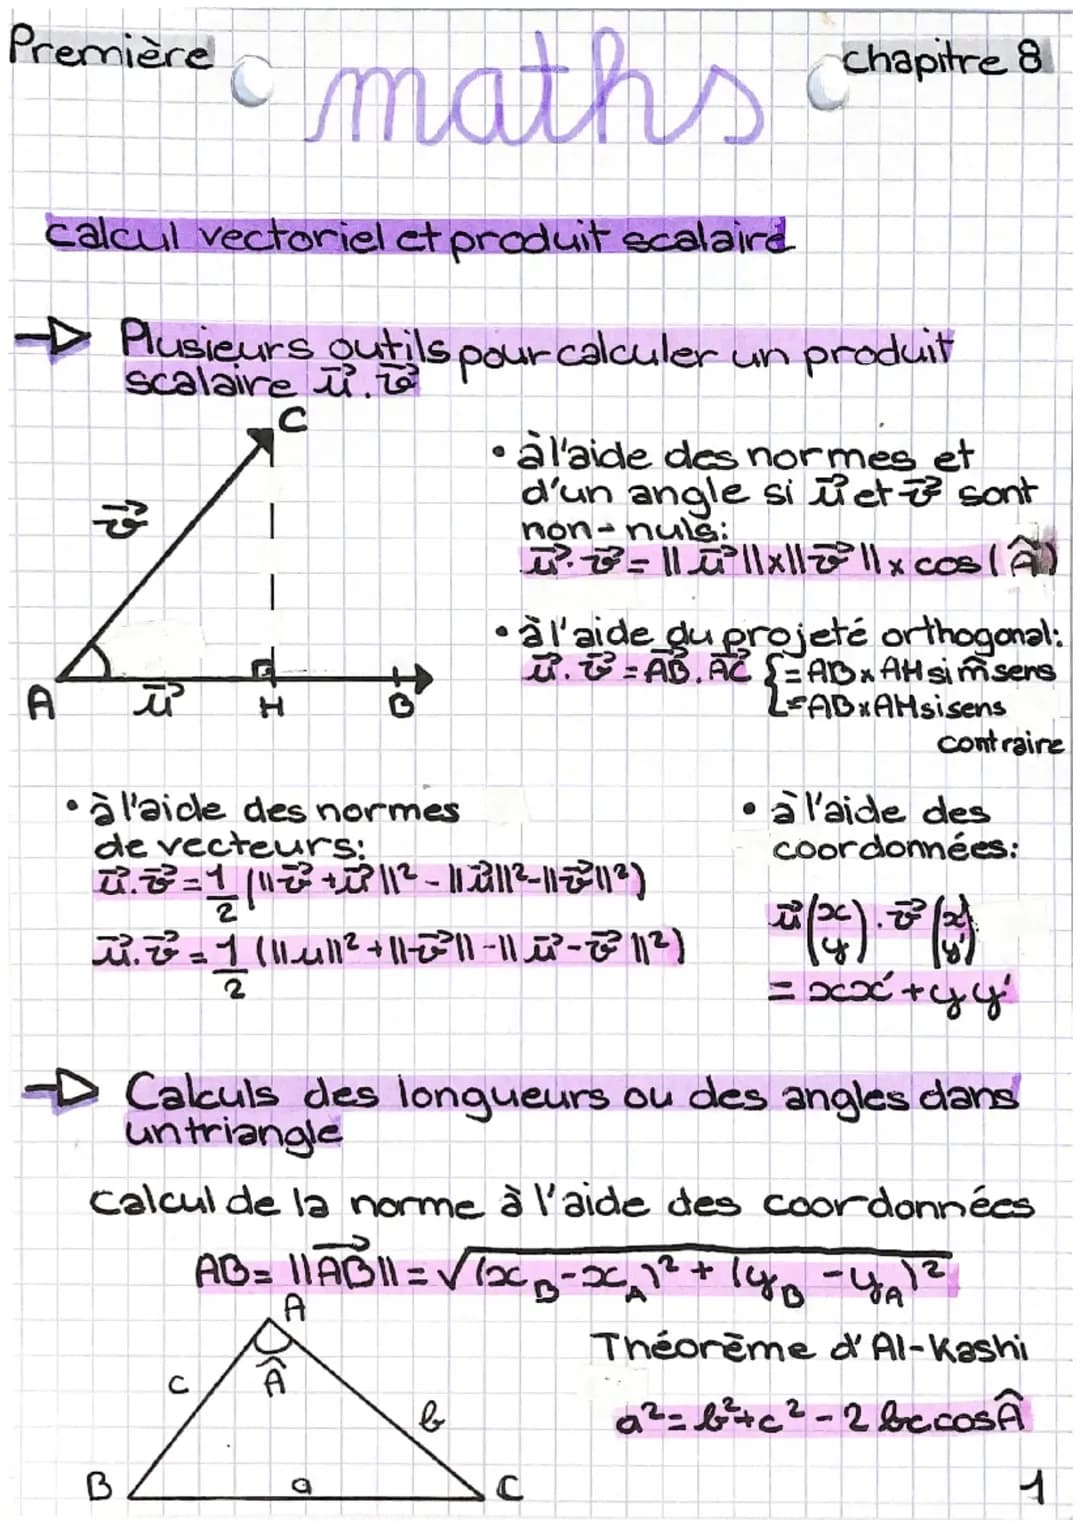 Première
maths
chapitre 8
calcul vectoriel et produit scalaire
Plusieurs outils pour calculer un produit
scalaire u⃗.v⃗
C
v⃗
A
u⃗
H
B
• à l'aide des normes et
d'un angle si u⃗ et v⃗ sont
non-nuls:
u⃗.v⃗ = ||u⃗||x||v⃗||x cos(Â)
• à l'aide du projeté orthogonal:
u⃗.v⃗ = AB⃗.AC⃗ {= AB x AH si m̂ sens
= AB x AH si sens
contraire
• à l'aide des normes
de vecteurs:
u⃗.v⃗ = 1/2 (||v⃗ + u⃗||² - ||u⃗||² - ||v⃗||²)
u⃗.v⃗ = 1/2 (||u||² + ||v⃗|| - ||u⃗ - v⃗||²)
• à l'aide des
coordonnées:
u⃗(x y) . v⃗(x' y')
= xx' + yy'
Calculs des longueurs ou des angles dans
un triangle
calcul de la norme à l'aide des coordonnées
AB = ||AB⃗|| = √(x_B - x_A)² + (y_B - y_A)²
A
Â
c
b
B
a
C
Théorème d'Al-Kashi
a² = b² + c² - 2 bc cos Â
1